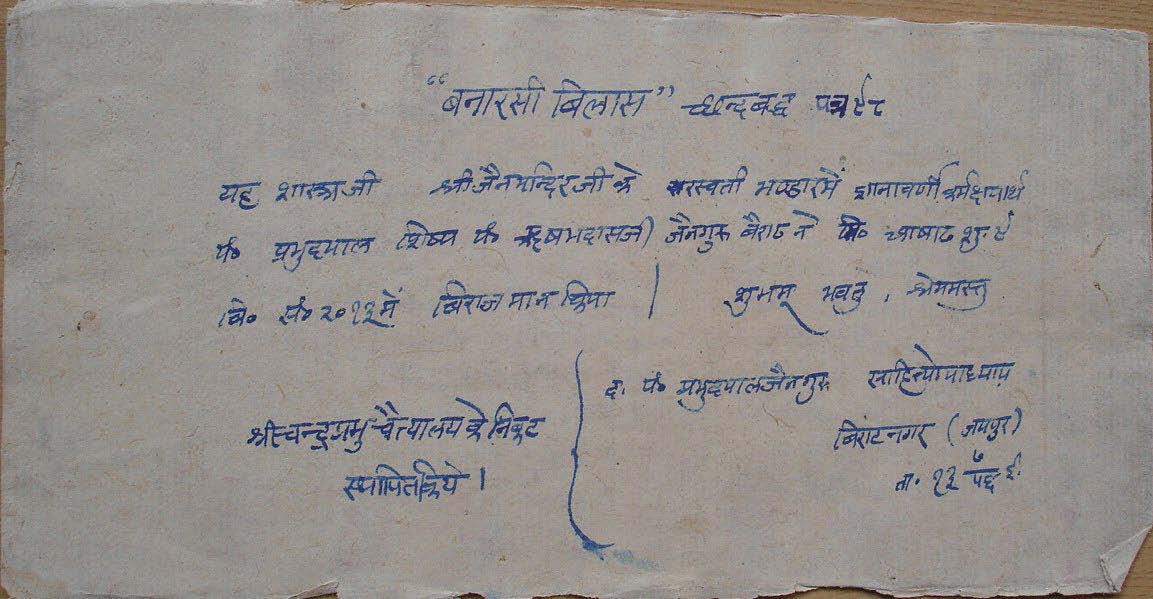 “बनारसी बिलास” छन्दबद्ध पत्र ९८
यह शास्त्रजी श्री जैन मन्दिर जी के सरस्वती भण्डार में ज्ञानावर्णी कर्मक्षयार्थ
पं० प्रभुदयाल शिष्य पं० ऋषभदासजी जैनगुरु बैराठ ने मि० आषाढ शु. ९
वि० सं० २०१३ में बिराजमान किया | शुभम् भवतु, श्रेयमस्तु
द. पं० प्रभुदयाल जैनगुरु साहित्योपाध्याय
बिराटनगर (जयपुर)
ता. १३ ७/५६ ई.
श्रीचन्द्रप्रभु चैत्यालय के निकट
स्थापित किये।